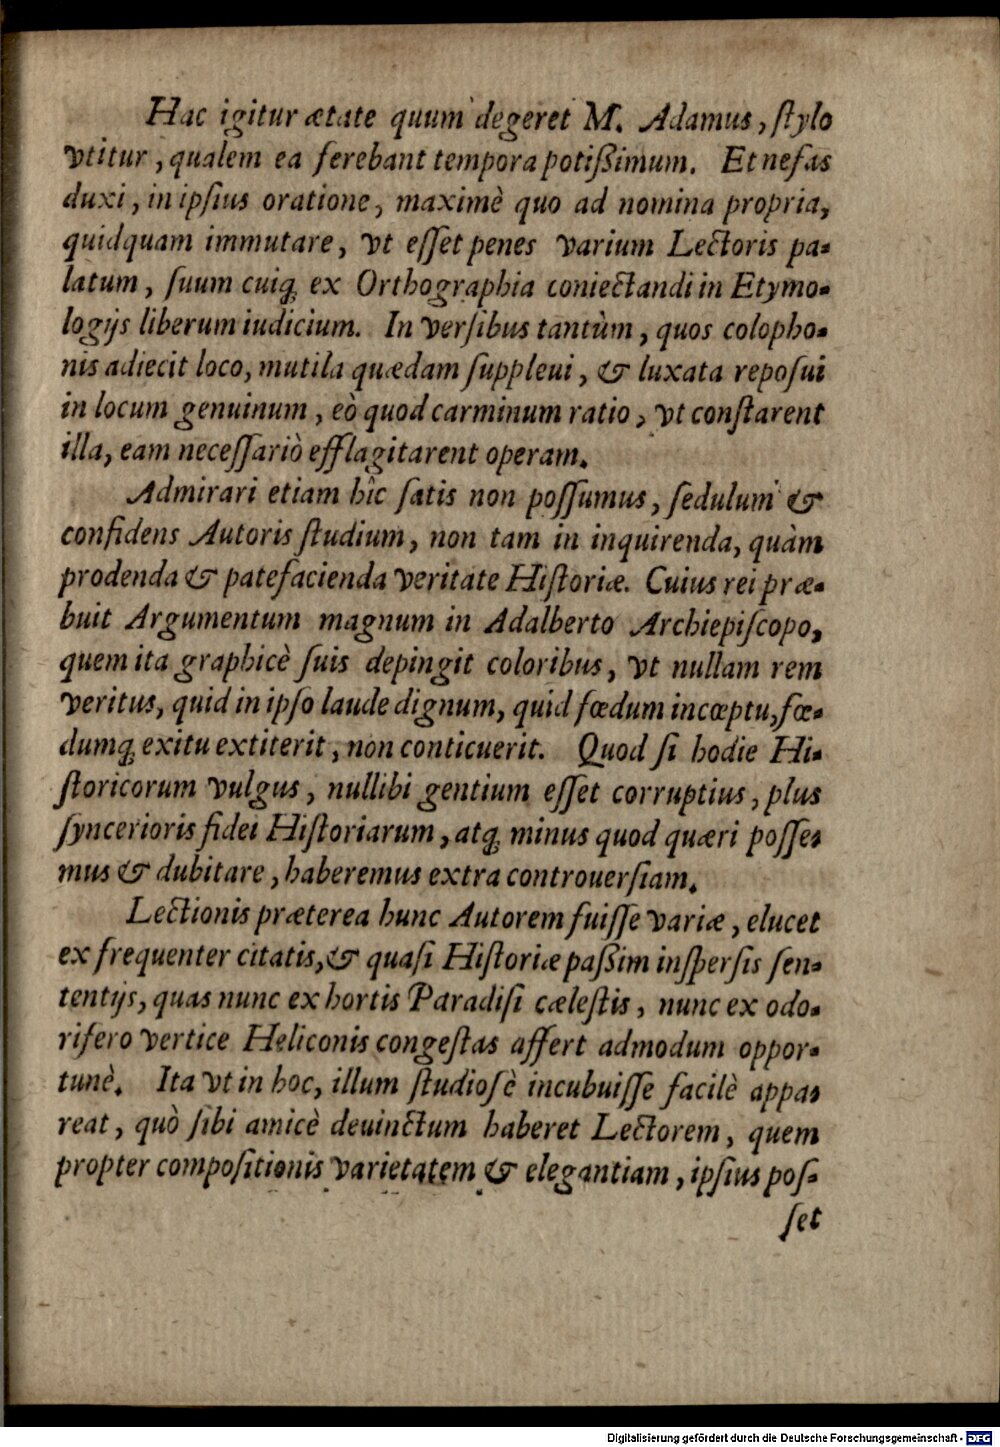 Hac igitur ætate quum degeret M. Adamus, ſtylo
vtitur, qualem ea ferebant tempora potißimum. Et nefas
duxi, in ipſius oratione, maximè quo ad nomina propria,
quidquam immutare, vt eſſet penes varium Lectoris pa-
latum, ſuum cuiq; ex Orthographia coniectandi in Etymo-
logijs liberum iudicium. In verſibus tantùm, quos colopho-
nis adiecit loco, mutila quædam ſuppleui, & luxata repoſui
in locum genuinum, eò quod carminum ratio, vt conſtarent
illa, eam neceſſariò efflagitarent operam.
Admirari etiam hîc ſatis non poſſumus, ſedulum &
confidens Autoris ſtudium, non tam in inquirenda, quàm
prodenda & patefacienda veritate Hiſtoriæ. Cuius rei præ-
buit Argumentum magnum in Adalberto Archiepiſcopo,
quem ita graphicè ſuis depingit coloribus, vt nullam rem
veritus, quid in ipſo laude dignum, quid fœdum incœptu, fœ-
dumq; exitu extiterit, non conticuerit. Quod ſi hodie Hi-
ſtoricorum vulgus, nullibi gentium eſſet corruptius, plus
ſyncerioris fidei Hiſtoriarum, atq; minus quod quæri poſſe-
mus & dubitare, haberemus extra controuerſiam.
Lectionis præterea hunc Autorem fuiſſe variæ, elucet
ex frequenter citatis, & quaſi Hiſtoriæ paßim inſperſis ſen-
tentijs, quas nunc ex hortis Paradiſi cæleſtis, nunc ex odo-
rifero vertice Heliconis congeſtas affert admodum oppor-
tunè. Ita vt in hoc, illum ſtudioſè incubuiſſe facilè appa-
reat, quò ſibi amicè deuinctum haberet Lectorem, quem
propter compoſitionis varietatem & elegantiam, ipſius poſ-
ſet
Digitalisierung gefördert durch die Deutsche Forschungsgemeinschaft - DFG